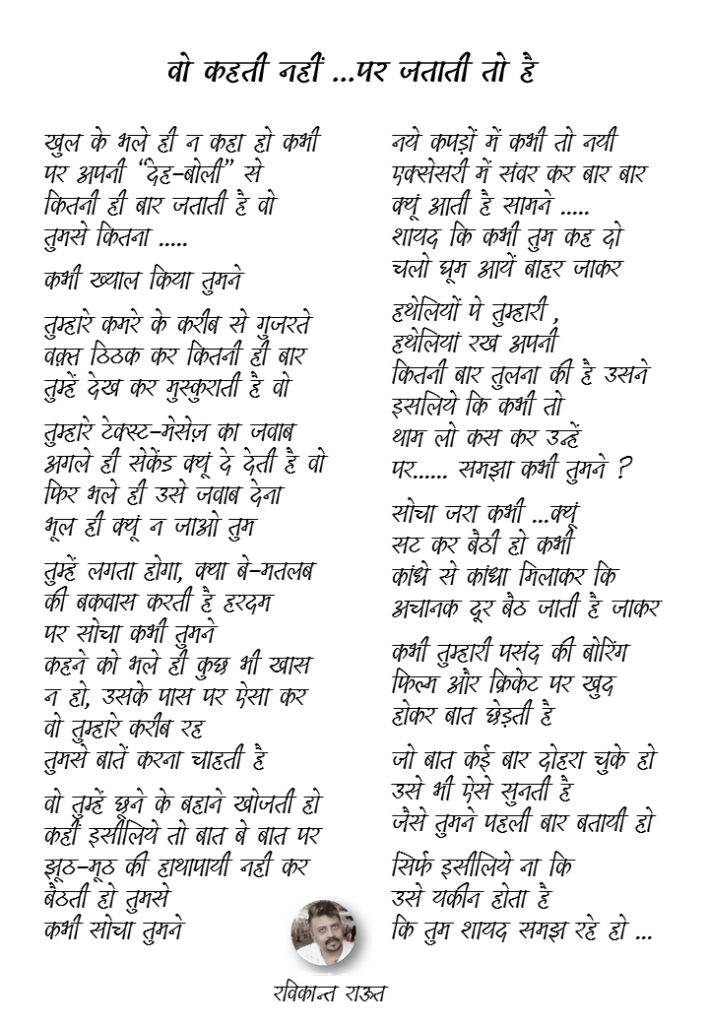 वो कहती नहीं ...पर जताती तो है
खुल के भले ही न कहा हो कभी
पर अपनी “देह-बोली” से
कितनी ही बार जताती है वो
तुमसे कितना .....
कभी ख्याल किया तुमने
तुम्हारे कमरे के करीब से गुजरते
वक़्त ठिठक कर कितनी ही बार
तुम्हें देख कर मुस्कुराती है वो
तुम्हारे टेक्स्ट-मेसेज़ का जवाब
अगले ही सेकेंड क्यूं दे देती है वो
फिर भले ही उसे जवाब देना
भूल ही क्यूं न जाओ तुम
तुम्हें लगता होगा, क्या बे-मतलब
की बकवास करती है हरदम
पर सोचा कभी तुमने
कहने को भले ही कुछ भी खास
न हो, उसके पास पर ऐसा कर
वो तुम्हारे करीब रह
तुमसे बातें करना चाहती है
वो तुम्हें छूने के बहाने खोजती हो
कहीं इसीलिये तो बात बे बात पर
झूठ-मूठ की हाथापायी नही कर
बैठती हो तुमसे
कभी सोचा तुमने
नये कपड़ों में कभी तो नयी
एक्सेसरी में संवर कर बार बार
क्यूं आती है सामने .....
शायद कि कभी तुम कह दो
चलो घूम आयें बाहर जाकर
हथेलियों पे तुम्हारी ,
हथेलियां रख अपनी
कितनी बार तुलना की है उसने
इसलिये कि कभी तो
थाम लो कस कर उन्हें
पर...... समझा कभी तुमने ?
सोचा जरा कभी ...क्यूं
सट कर बैठी हो कभी
कांधे से कांधा मिलाकर कि
अचानक दूर बैठ जाती है जाकर
कभी तुम्हारी पसंद की बोरिंग
फिल्म और क्रिकेट पर खुद
होकर बात छेड़ती है
जो बात कई बार दोहरा चुके हो
उसे भी ऐसे सुनती है
जैसे तुमने पहली बार बतायी हो
सिर्फ इसीलिये ना कि
उसे यकीन होता है
कि तुम शायद समझ रहे हो ...
रविकान्त राऊत